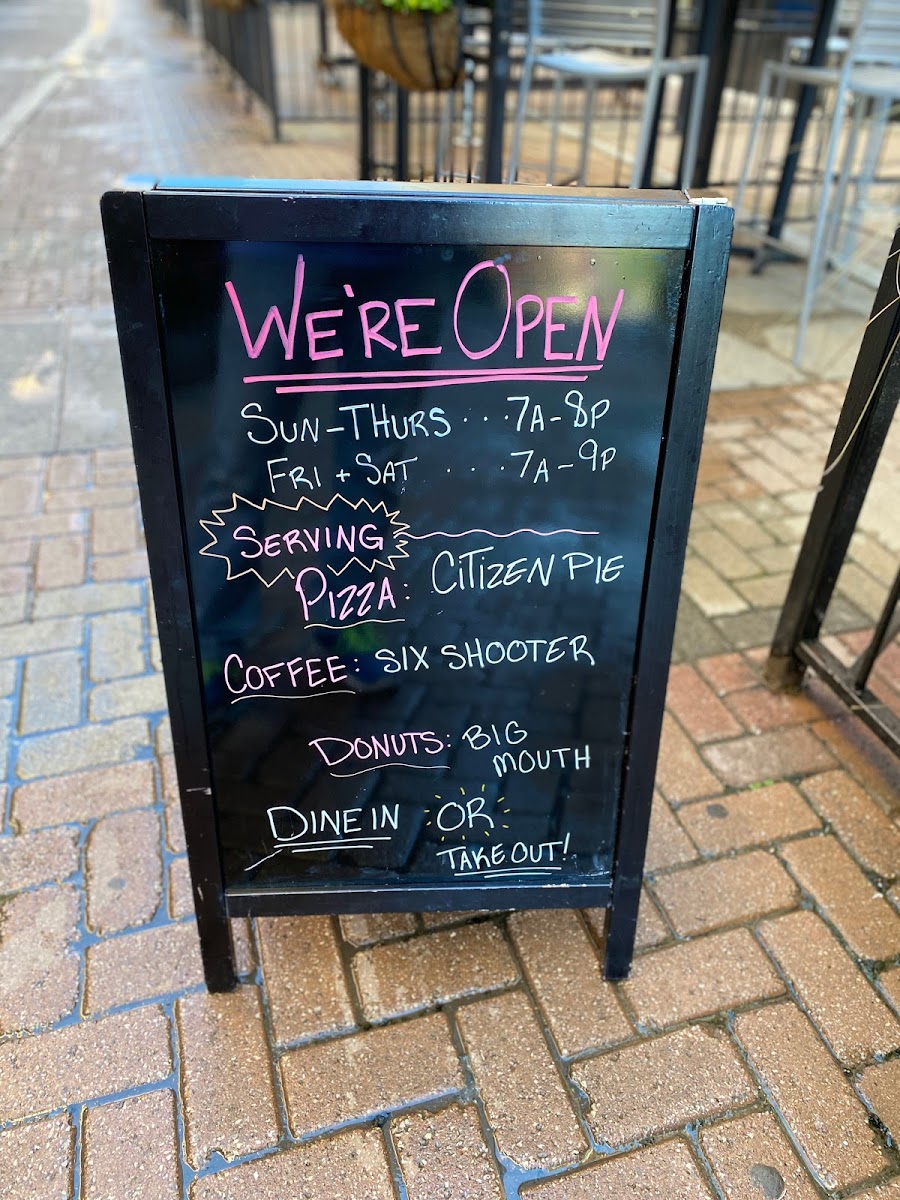 WE'RE OPEN
SUN-THURS ... 7A-8P
FRI + SAT .... 7A-9P
SERVING
PIZZA: CITIZEN PIE
COFFEE: SIX SHOOTER
DONUTS: BIG
MOUTH
DINE IN OR
TAKE OUT!